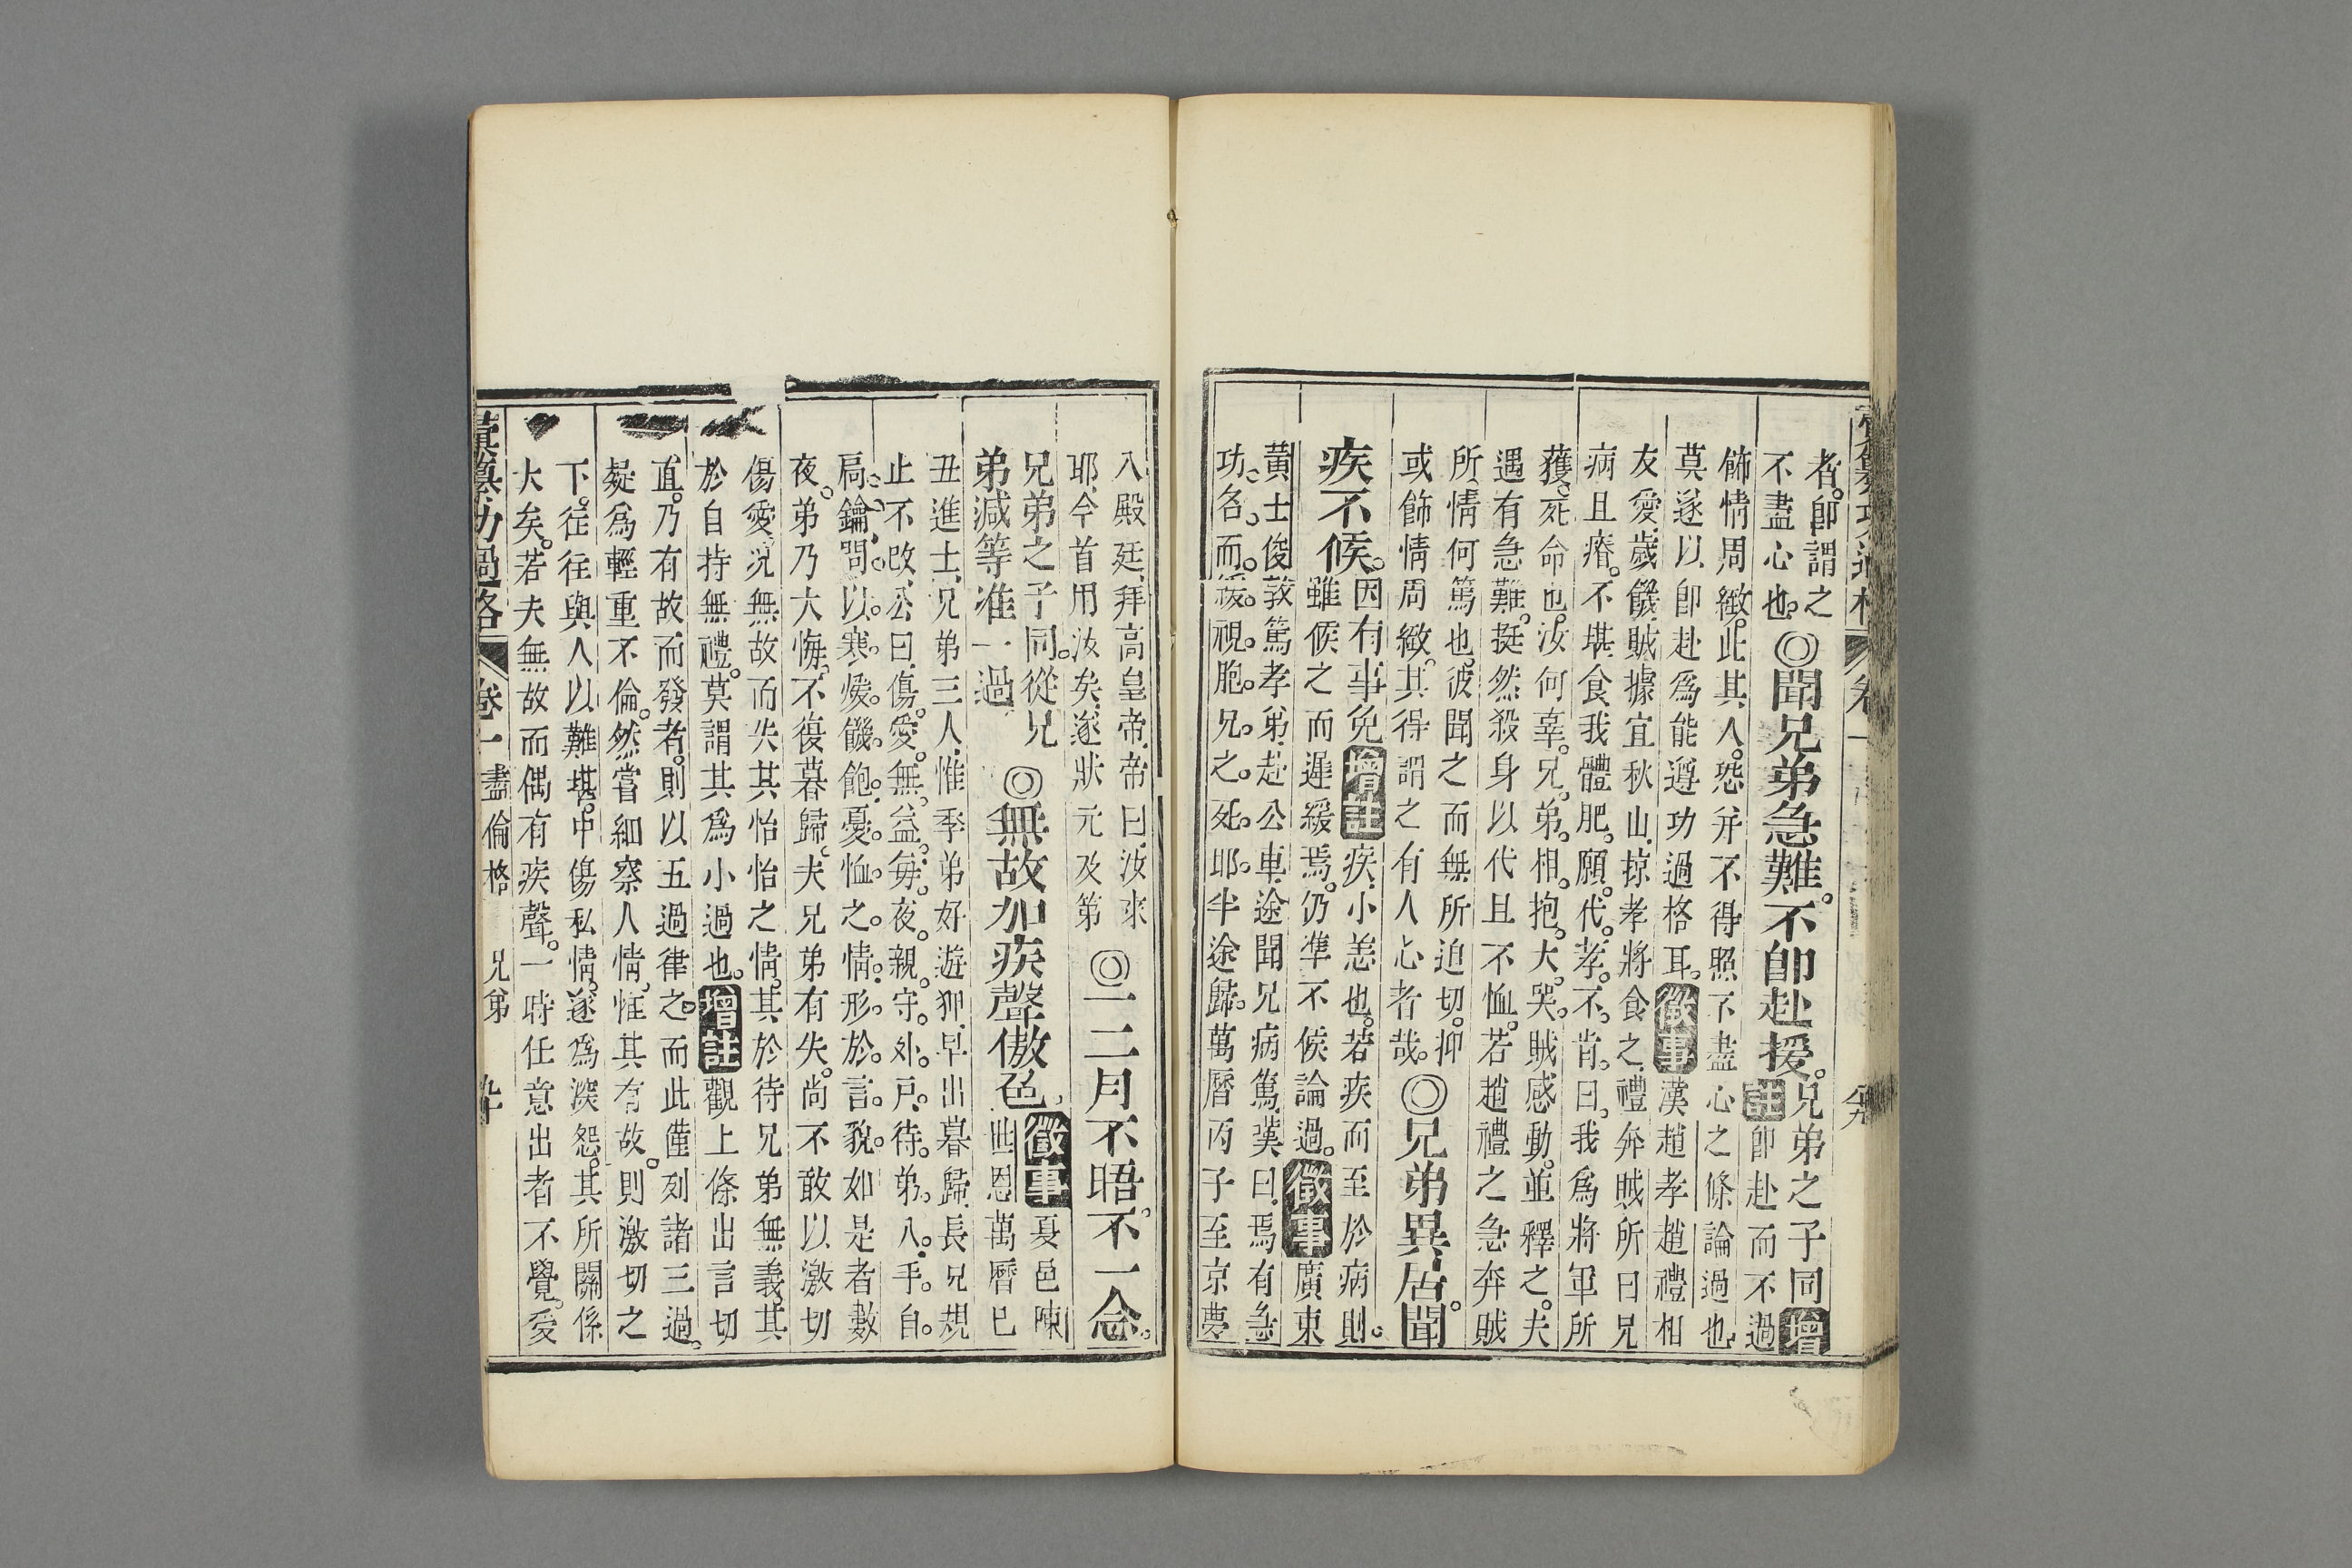 者。即謂之
不盡心也。
◎聞兄弟急難。不即赴援。
兄弟之子同增
註即赴而不過
飾情周緻。此其人。恐幷不得照不盡心之條論過也
莫遂以即赴爲能遵功過格耳。徵事漢趙孝趙禮相
友愛歲饑賊據宜秋山掠孝將食之禮奔賊所曰兄
病且瘠。不堪食我體肥。願。代。孝。不。肯。曰。我爲將軍所
獲。死命也。汝何辜。兄。弟。相。抱。大。哭。賊感動。並釋之。夫
遇有急難。挺然殺身以代且不恤。若趙禮之急奔賊
所情何篤也。彼聞之而無所迫切。抑
或飾情周緻。其得謂之有人心者哉。
◎兄弟異居。聞
疾不候。
因有事免增註疾小恙也。若疾而至於病則。
雖候之而遲緩焉。仍準不候論過。徵事廣東
黃士俊敦篤孝弟赴公車途聞兄病篤嘆曰焉有急
功。名。而。緩。視。胞。兄。之。死。耶。半途歸。萬曆丙子至京夢
入殿廷拜高皇帝帝曰汝來
耶今首用汝矣遂狀元及第
◎一二月不晤。不一念。
兄弟之子同。從兄
弟減等准一過
◎無故加疾聲傲色。
徵事夏邑陳
世恩萬曆巳
丑進士兄弟三人惟季弟好遊狎早出暮歸長兄規
止不改公曰傷。愛。無。益。每。夜。親。守。外。戶。待。弟。入。手。自。
扃。鑰。問。以。寒。煖。饑。飽。憂。恤。之。情。形。於。言。貌。如是者數
夜。弟乃大悔。不復暮歸。夫兄弟有失。尚不敢以激切
傷愛。況無故而失其怡怡之情。其於待兄弟無義。其
於自持無禮。莫謂其爲小過也。增註觀上條出言切
直。乃有故而發者。則以五過律之。而此僅列諸三過。
疑爲輕重不倫。然嘗細察人情。惟其有故。則激切之
下。往往與人以難堪。中傷私情。遂爲深怨。其所關係
大矣。若夫無故而偶有疾聲。一時任意出者不覺。愛
彙纂功過格 卷一 盡倫格 兄弟 七十